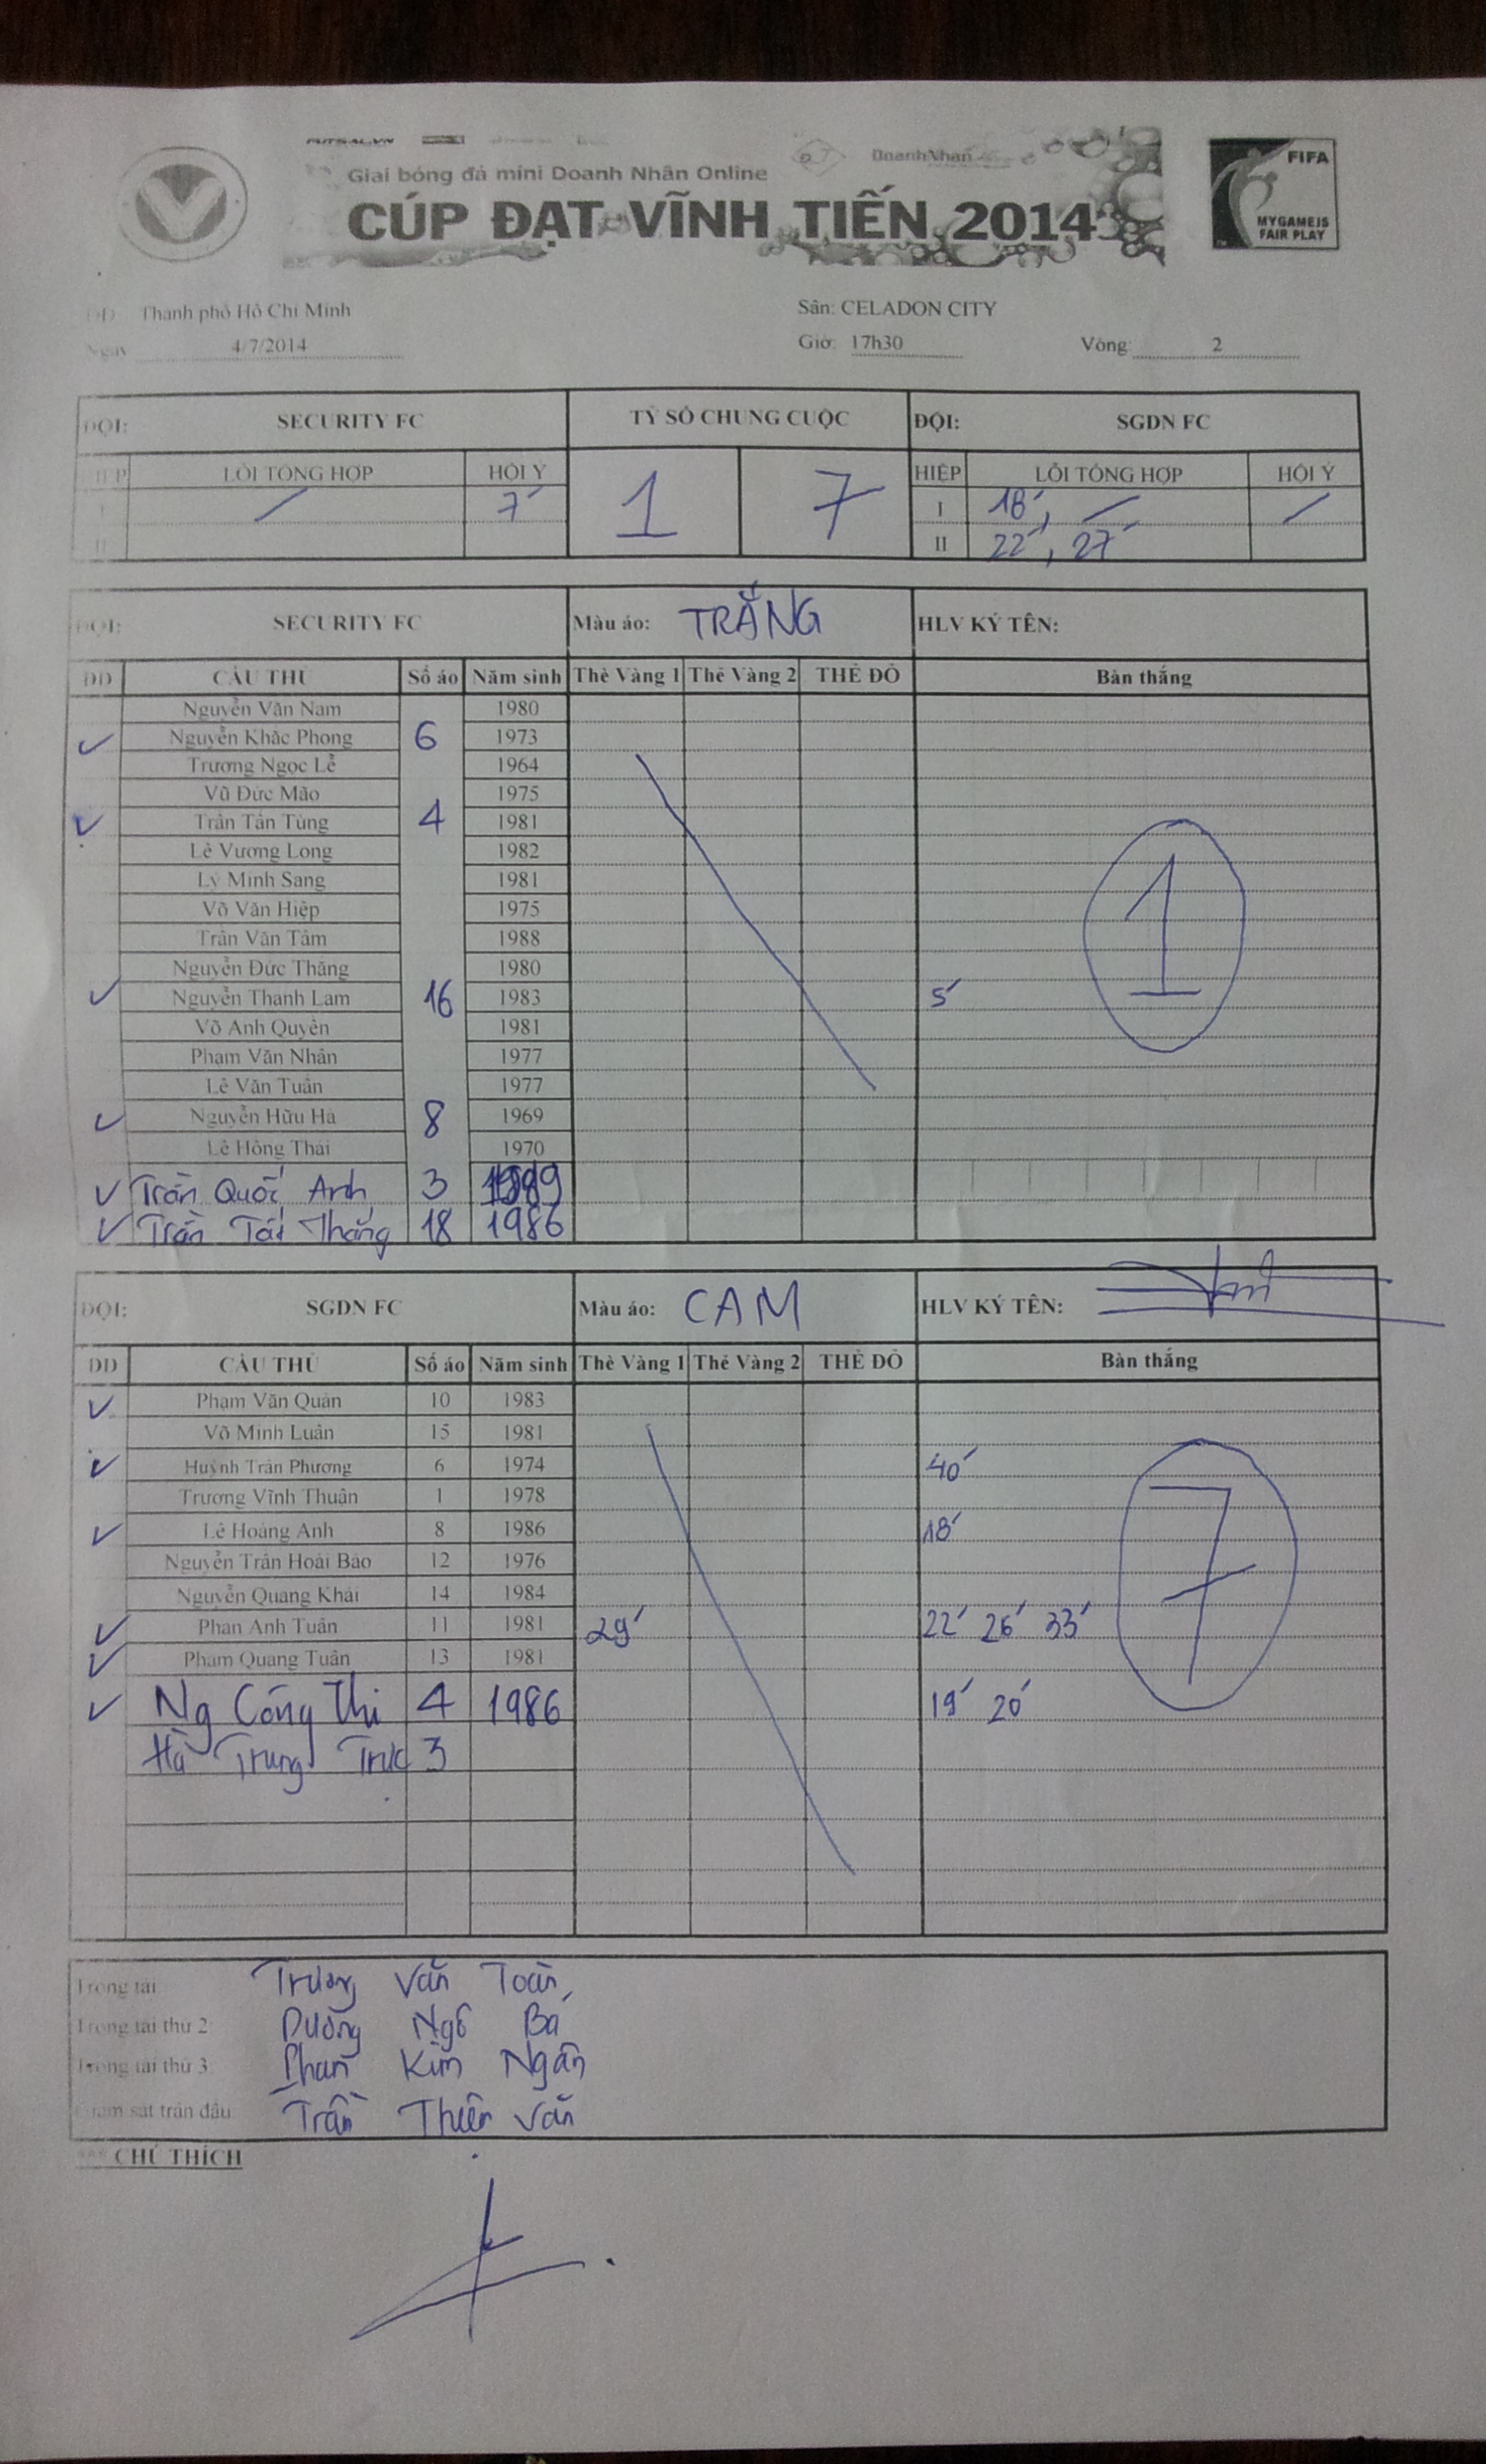 FUTSAL.VN
DoanhNhan
Giải bóng đá mini Doanh Nhân Online
CÚP ĐẠT VĨNH TIẾN 2014
FIFA
MY GAME IS
FAIR PLAY
DD Thành phố Hồ Chí Minh Sân: CELADON CITY
Ngày 4/7/2014 Giờ: 17h30 Vòng: 2
ĐỘI: SECURITY FC TỶ SỐ CHUNG CUỘC ĐỘI: SGDN FC
HIỆP LỖI TỔNG HỢP HỘI Ý 1 7 HIỆP LỖI TỔNG HỢP HỘI Ý
I / 7' I 18', / /
II II 22', 27'
ĐỘI: SECURITY FC Màu áo: TRẮNG HLV KÝ TÊN:
DD CẦU THỦ Số áo Năm sinh Thẻ Vàng 1 Thẻ Vàng 2 THẺ ĐỎ Bàn thắng
Nguyễn Văn Nam 1980
✓ Nguyễn Khắc Phong 6 1973
Trương Ngọc Lễ 1964
Vũ Đức Mão 1975
✓ Trần Tấn Tùng 4 1981
Lê Vương Long 1982
Lý Minh Sang 1981
Võ Văn Hiệp 1975
Trần Văn Tâm 1988
Nguyễn Đức Thắng 1980
✓ Nguyễn Thanh Lam 16 1983 5'
Võ Anh Quyền 1981
Phạm Văn Nhân 1977
Lê Văn Tuấn 1977
✓ Nguyễn Hữu Hà 8 1969
Lê Hồng Thái 1970
✓ Trần Quốc Anh 3 1989
✓ Trần Tất Thắng 18 1986
1
ĐỘI: SGDN FC Màu áo: CAM HLV KÝ TÊN:
DD CẦU THỦ Số áo Năm sinh Thẻ Vàng 1 Thẻ Vàng 2 THẺ ĐỎ Bàn thắng
✓ Phạm Văn Quân 10 1983
Võ Minh Luân 15 1981
✓ Huỳnh Trần Phương 6 1974 40'
Trương Vĩnh Thuận 1 1978
✓ Lê Hoàng Anh 8 1986 18'
Nguyễn Trần Hoài Bảo 12 1976
Nguyễn Quang Khải 14 1984
✓ Phan Anh Tuấn 11 1981 29' 22' 26' 33'
✓ Phạm Quang Tuân 13 1981
✓ Ng Công Thi 4 1986 19' 20'
Hà Trung Trực 3
7
Trọng tài Trương Văn Toàn
Trọng tài thứ 2: Dương Ngô Bá
Trọng tài thứ 3: Phan Kim Ngân
Giám sát trận đấu: Trần Thiên Văn
CHÚ THÍCH